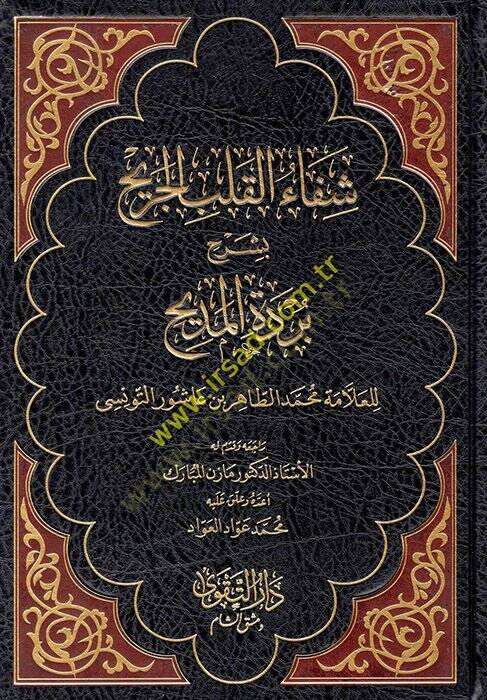 شفاء القلب الجريح
بشرح
بردة المديح
للعلامة محمد الطاهر بن عاشور التونسي
راجعه وقدم له
الأستاذ الدكتور مازن المبارك
أعده وعلق عليه
محمد عواد العواد
دار التقوى
دمشق الشام
www.irsad.com.tr